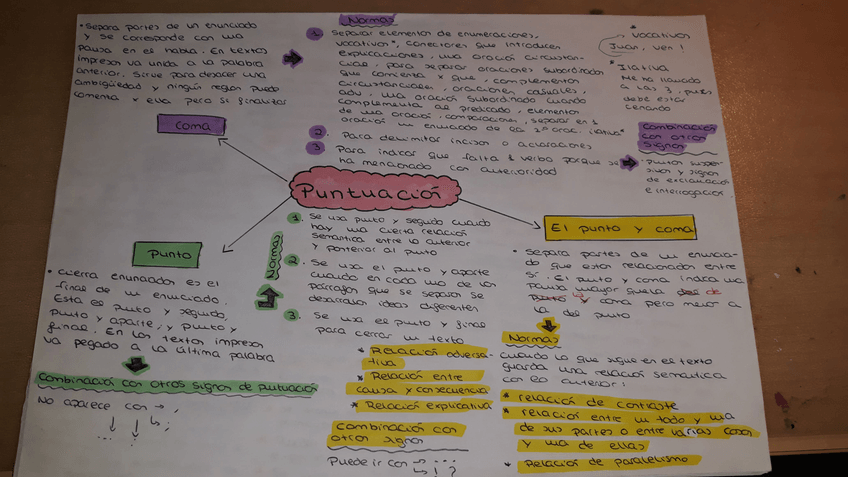 Puntuación
Coma
• Separa partes de un enunciado
y se corresponde con una
pausa en el habla. En textos
impresos va unida a la palabra
anterior. Sirve para desacer una
ambigüedad y ningún reglón puede
comenta x ella pero si finalizar
Normas
1 Separar elementos de enumeraciones,
vocativos*, conectores que introducen
explicaciones, una oración circunstan-
cial, para separar oraciones subordinadas
que comienta x que, complementos
circunstanciales, oraciones causales,
adv, una oración subordinada cuando
complementa al predicado, elementos
de una oración, comparaciones, separar en 1
oración un enunciado de la 2ª orac. ilativa*
2. Para delimitar incisos o aclaraciones
3 Para indicar que falta 1 verbo porque se
ha mencionado con anterioridad
* Vocativos
Juan, ven!
* Ilativa
Me ha llamado
a las 3, pues
debe estar
cenando
Combinación
con otros
signos
• Puntos suspen-
sivos y signos
de exclamación
e interrogación
Punto
• Cierra enunciados es el
final de un enunciado.
Esta el punto y seguido,
punto y aparte, y punto y
final. En los textos impresos
va pegado a la última palabra
Combinación con otros signos de puntuación
No aparece con → ;
...
,
:
Normas
1. Se usa punto y seguido cuando
hay una cierta relación
semántica entre lo anterior
y posterior al punto
2. Se usa el punto y aparte
cuando en cada uno de los
párrafos que se separan se
desarrollan ideas diferentes
3 Se usa el punto y final
para cerrar un texto
El punto y coma
• Separa partes de un enuncia-
do que están relacionados entre
sí. El punto y coma indica una
pausa mayor que la del de
punto y coma pero menor a
la del punto
Normas
Cuando lo que sigue en el texto
guarda una relación semántica
con lo anterior:
* relación de contraste
* relación entre un todo y una
de sus partes o entre varias cosas
y una de ellas
* Relación de paralelismo
* Relación adversa-
tiva
* Relación entre
causa y consecuencia
* Relación explicativa
Combinación con
otros signos
Puede ir con → ...
↳ ! ?